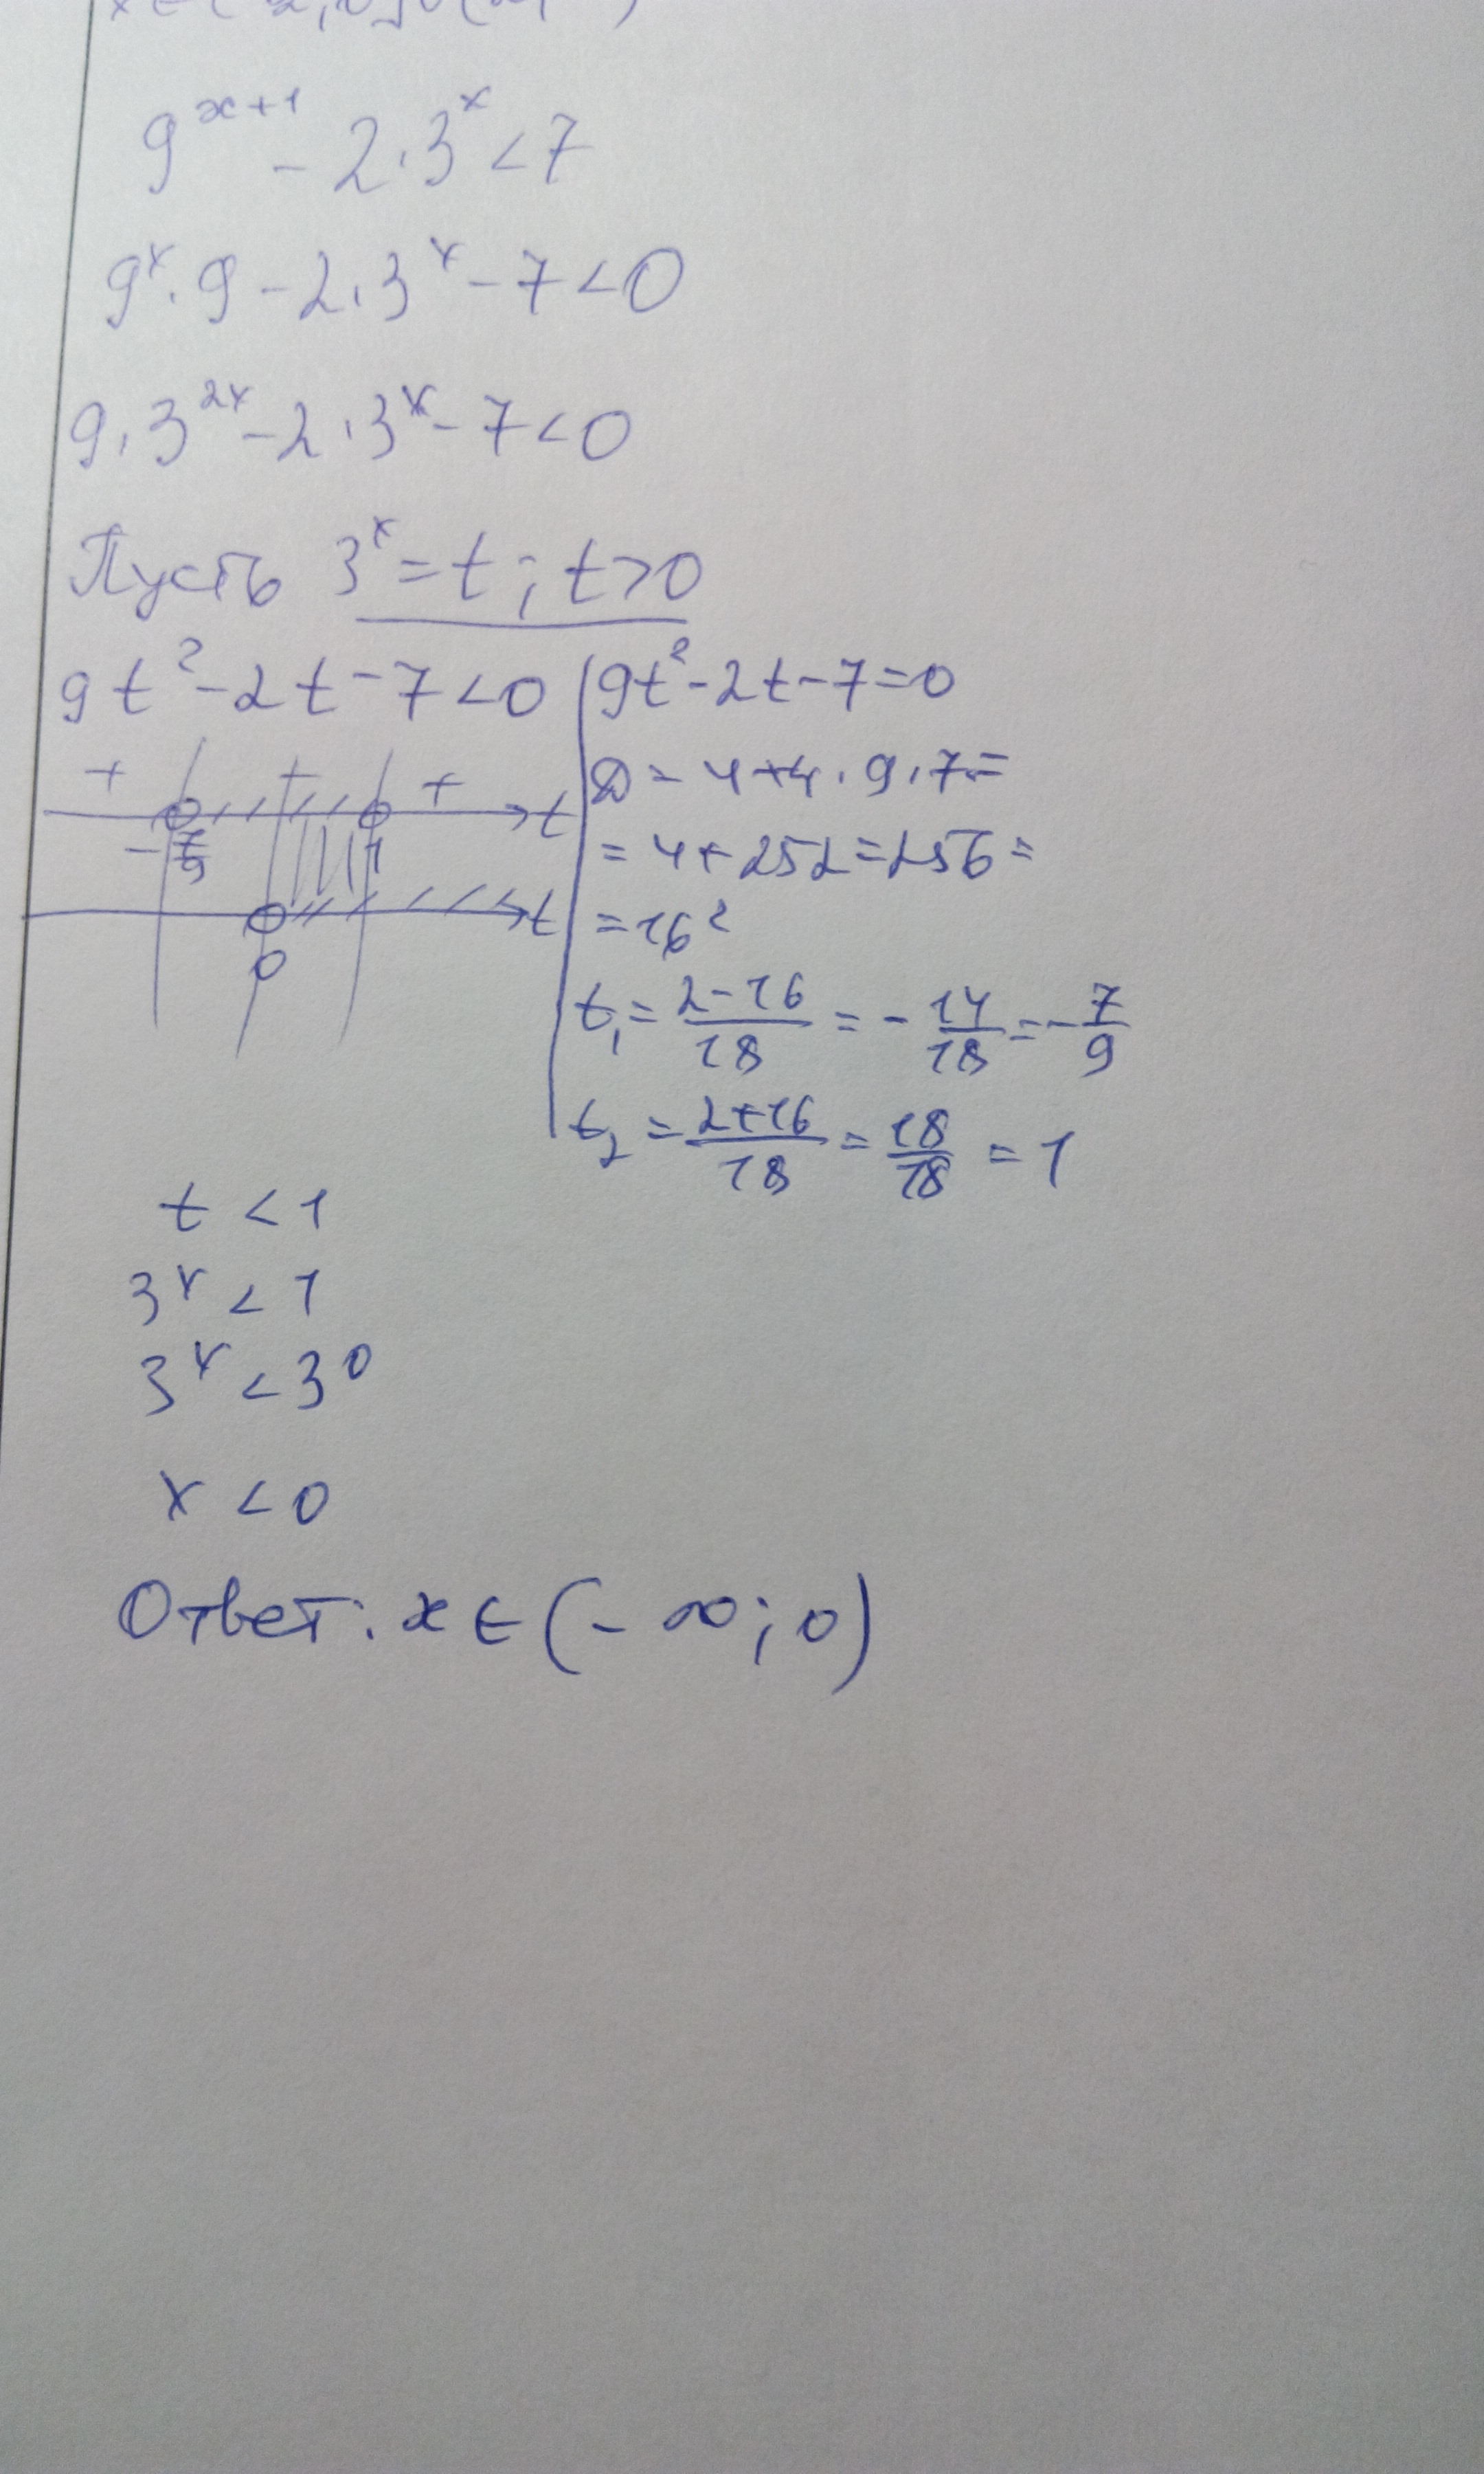 9^{x+1} - 2·3^x < 7
9^x·9 - 2·3^x - 7 < 0
9·3^{2x} - 2·3^x - 7 < 0
Пусть 3^x = t; t > 0
9t² - 2t - 7 < 0
+ + + t
-7/9 1
t
0
9t² - 2t - 7 = 0
D = 4 + 4·9·7 =
= 4 + 252 = 256 =
= 16²
t₁ = (2-16)/18 = -14/18 = -7/9
t₂ = (2+16)/18 = 18/18 = 1
t < 1
3^x < 1
3^x < 3^0
x < 0
Ответ: x ∈ (-∞; 0)